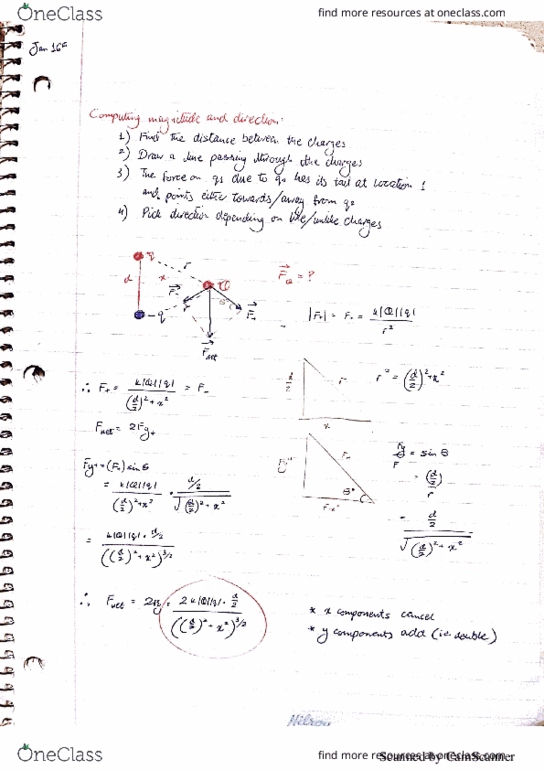 OneClass
find more resources at oneclass.com
Jan 16th
Computing magnitude and direction:
1) Find the distance between the charges
2) Draw a line passing through the charges
3) The force on q₁ due to q₂ has its tail at location 1
and points either towards/away from q₂
4) Pick direction depending on like/unlike charges
q
r
d
x
Q
θ
F₊
F₋
-q
F_net
F_Q = ?
|F₊| = F₋ = k|Q||q| / r²
∴ F₊ = k|Q||q| / ((d/2)² + x²) = F₋
d/2
r
x
r² = (d/2)² + x²
F_net = 2F_y₊
F_y₊ = (F₊) sin θ
= k|Q||q| / ((d/2)² + x²) · (d/2) / √((d/2)² + x²)
F₊
θ
F_y / F = sin θ
= (d/2) / r
= (d/2) / √((d/2)² + x²)
= k|Q||q| · d/2 / ((d/2)² + x²)^3/2
∴ F_net = 2F_y = 2k|Q||q| · d/2 / ((d/2)² + x²)^3/2
* x components cancel
* y components add (i.e. double)
Hilroy
OneClass
find more resources at oneclass.com
Scanned by CamScanner